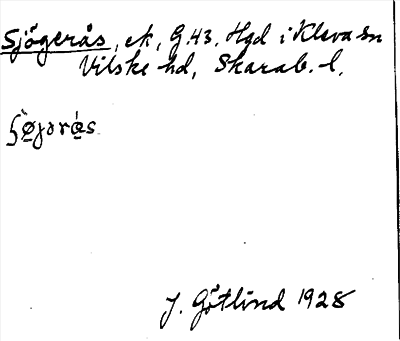 Sjögerås, ek, G.43. Hgd i Kleva sn
Vilske hd, Skarab. l.
J. Götlind 1928